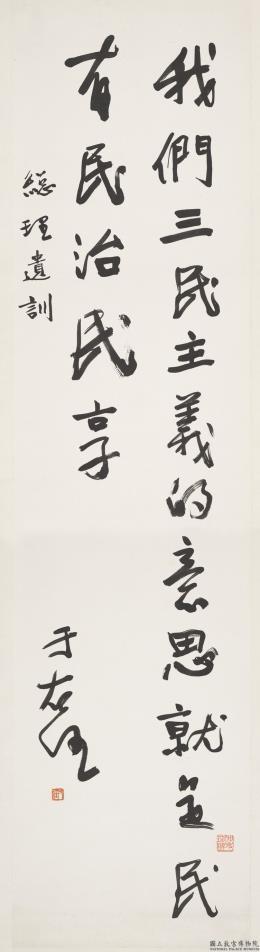 我們三民主義的意思就是民
有民治民享
總理遺訓
于右任
國立故宮博物院
NATIONAL PALACE MUSEUM